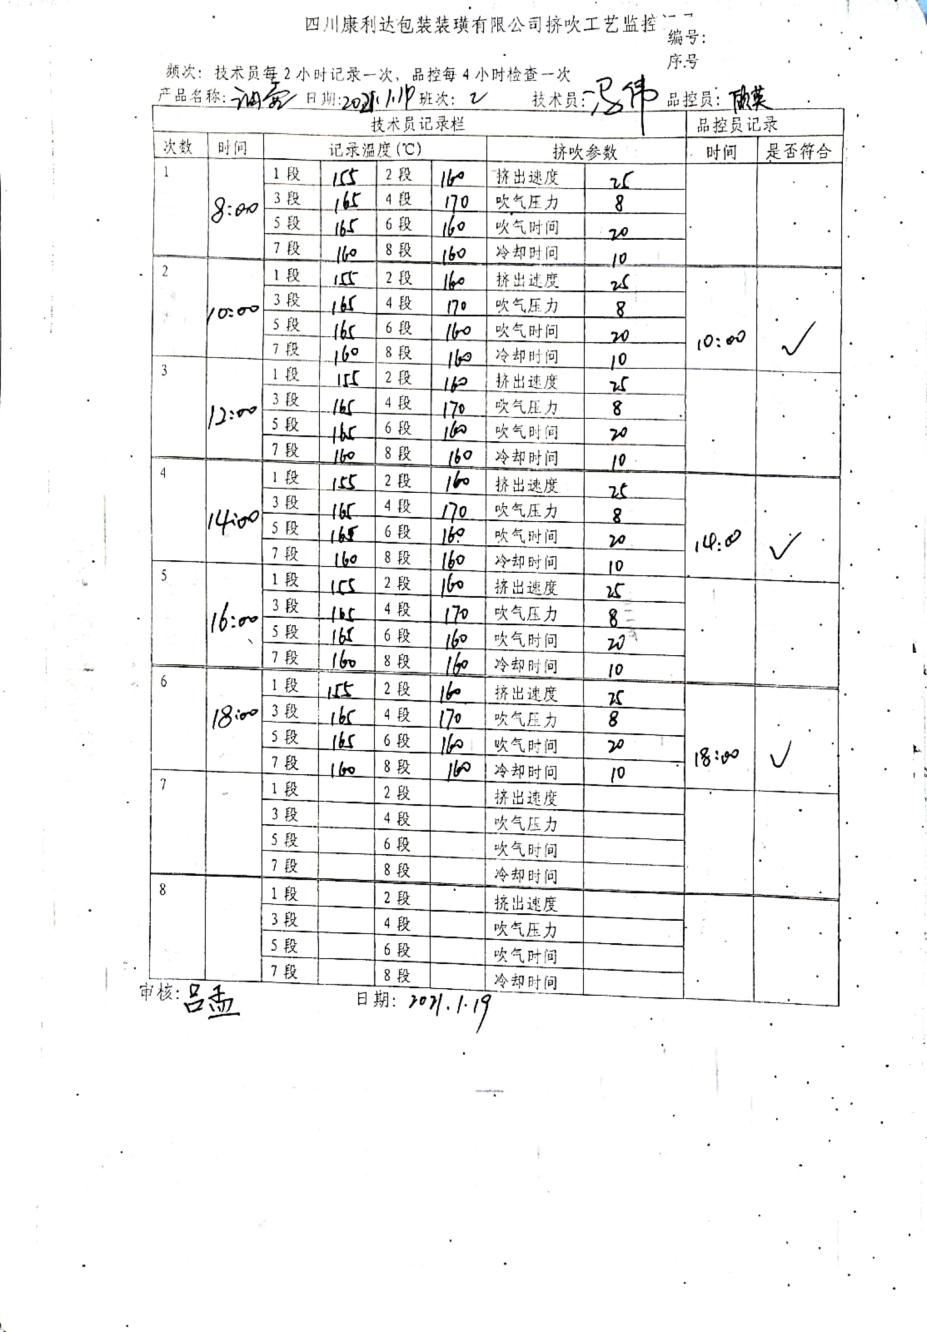 四川康利达包装装璜有限公司挤吹工艺监控
编号:
序号
频次: 技术员每2小时记录一次, 品控每4小时检查一次
产品名称: 油壶 日期: 2021.1.19 班次: 2 技术员: 冯伟 品控员:
技术员记录栏 品控员记录
次数 时间 记录温度(℃) 挤吹参数 时间 是否符合
1 8:00 1段 155 2段 160 挤出速度 25
3段 165 4段 170 吹气压力 8
5段 165 6段 160 吹气时间 20
7段 160 8段 160 冷却时间 10
2 10:00 1段 155 2段 160 挤出速度 25 10:00 ✓
3段 165 4段 170 吹气压力 8
5段 165 6段 160 吹气时间 20
7段 160 8段 160 冷却时间 10
3 12:00 1段 155 2段 160 挤出速度 25
3段 165 4段 170 吹气压力 8
5段 165 6段 160 吹气时间 20
7段 160 8段 160 冷却时间 10
4 14:00 1段 155 2段 160 挤出速度 25 14:00 ✓
3段 165 4段 170 吹气压力 8
5段 165 6段 160 吹气时间 20
7段 160 8段 160 冷却时间 10
5 16:00 1段 155 2段 160 挤出速度 25
3段 165 4段 170 吹气压力 8
5段 165 6段 160 吹气时间 20
7段 160 8段 160 冷却时间 10
6 18:00 1段 155 2段 160 挤出速度 25 18:00 ✓
3段 165 4段 170 吹气压力 8
5段 165 6段 160 吹气时间 20
7段 160 8段 160 冷却时间 10
7 1段 2段 挤出速度
3段 4段 吹气压力
5段 6段 吹气时间
7段 8段 冷却时间
8 1段 2段 挤出速度
3段 4段 吹气压力
5段 6段 吹气时间
7段 8段 冷却时间
审核: 吕孟 日期: 2021.1.19